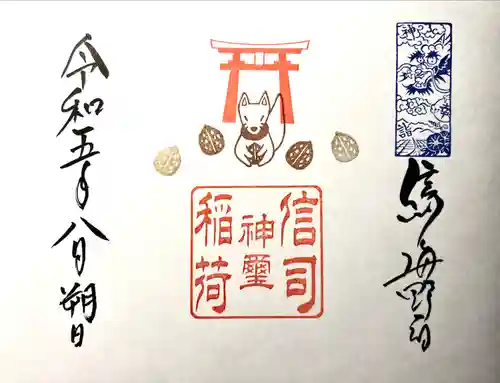 海野町
信司
神璽
稲荷
令和五年八月朔日